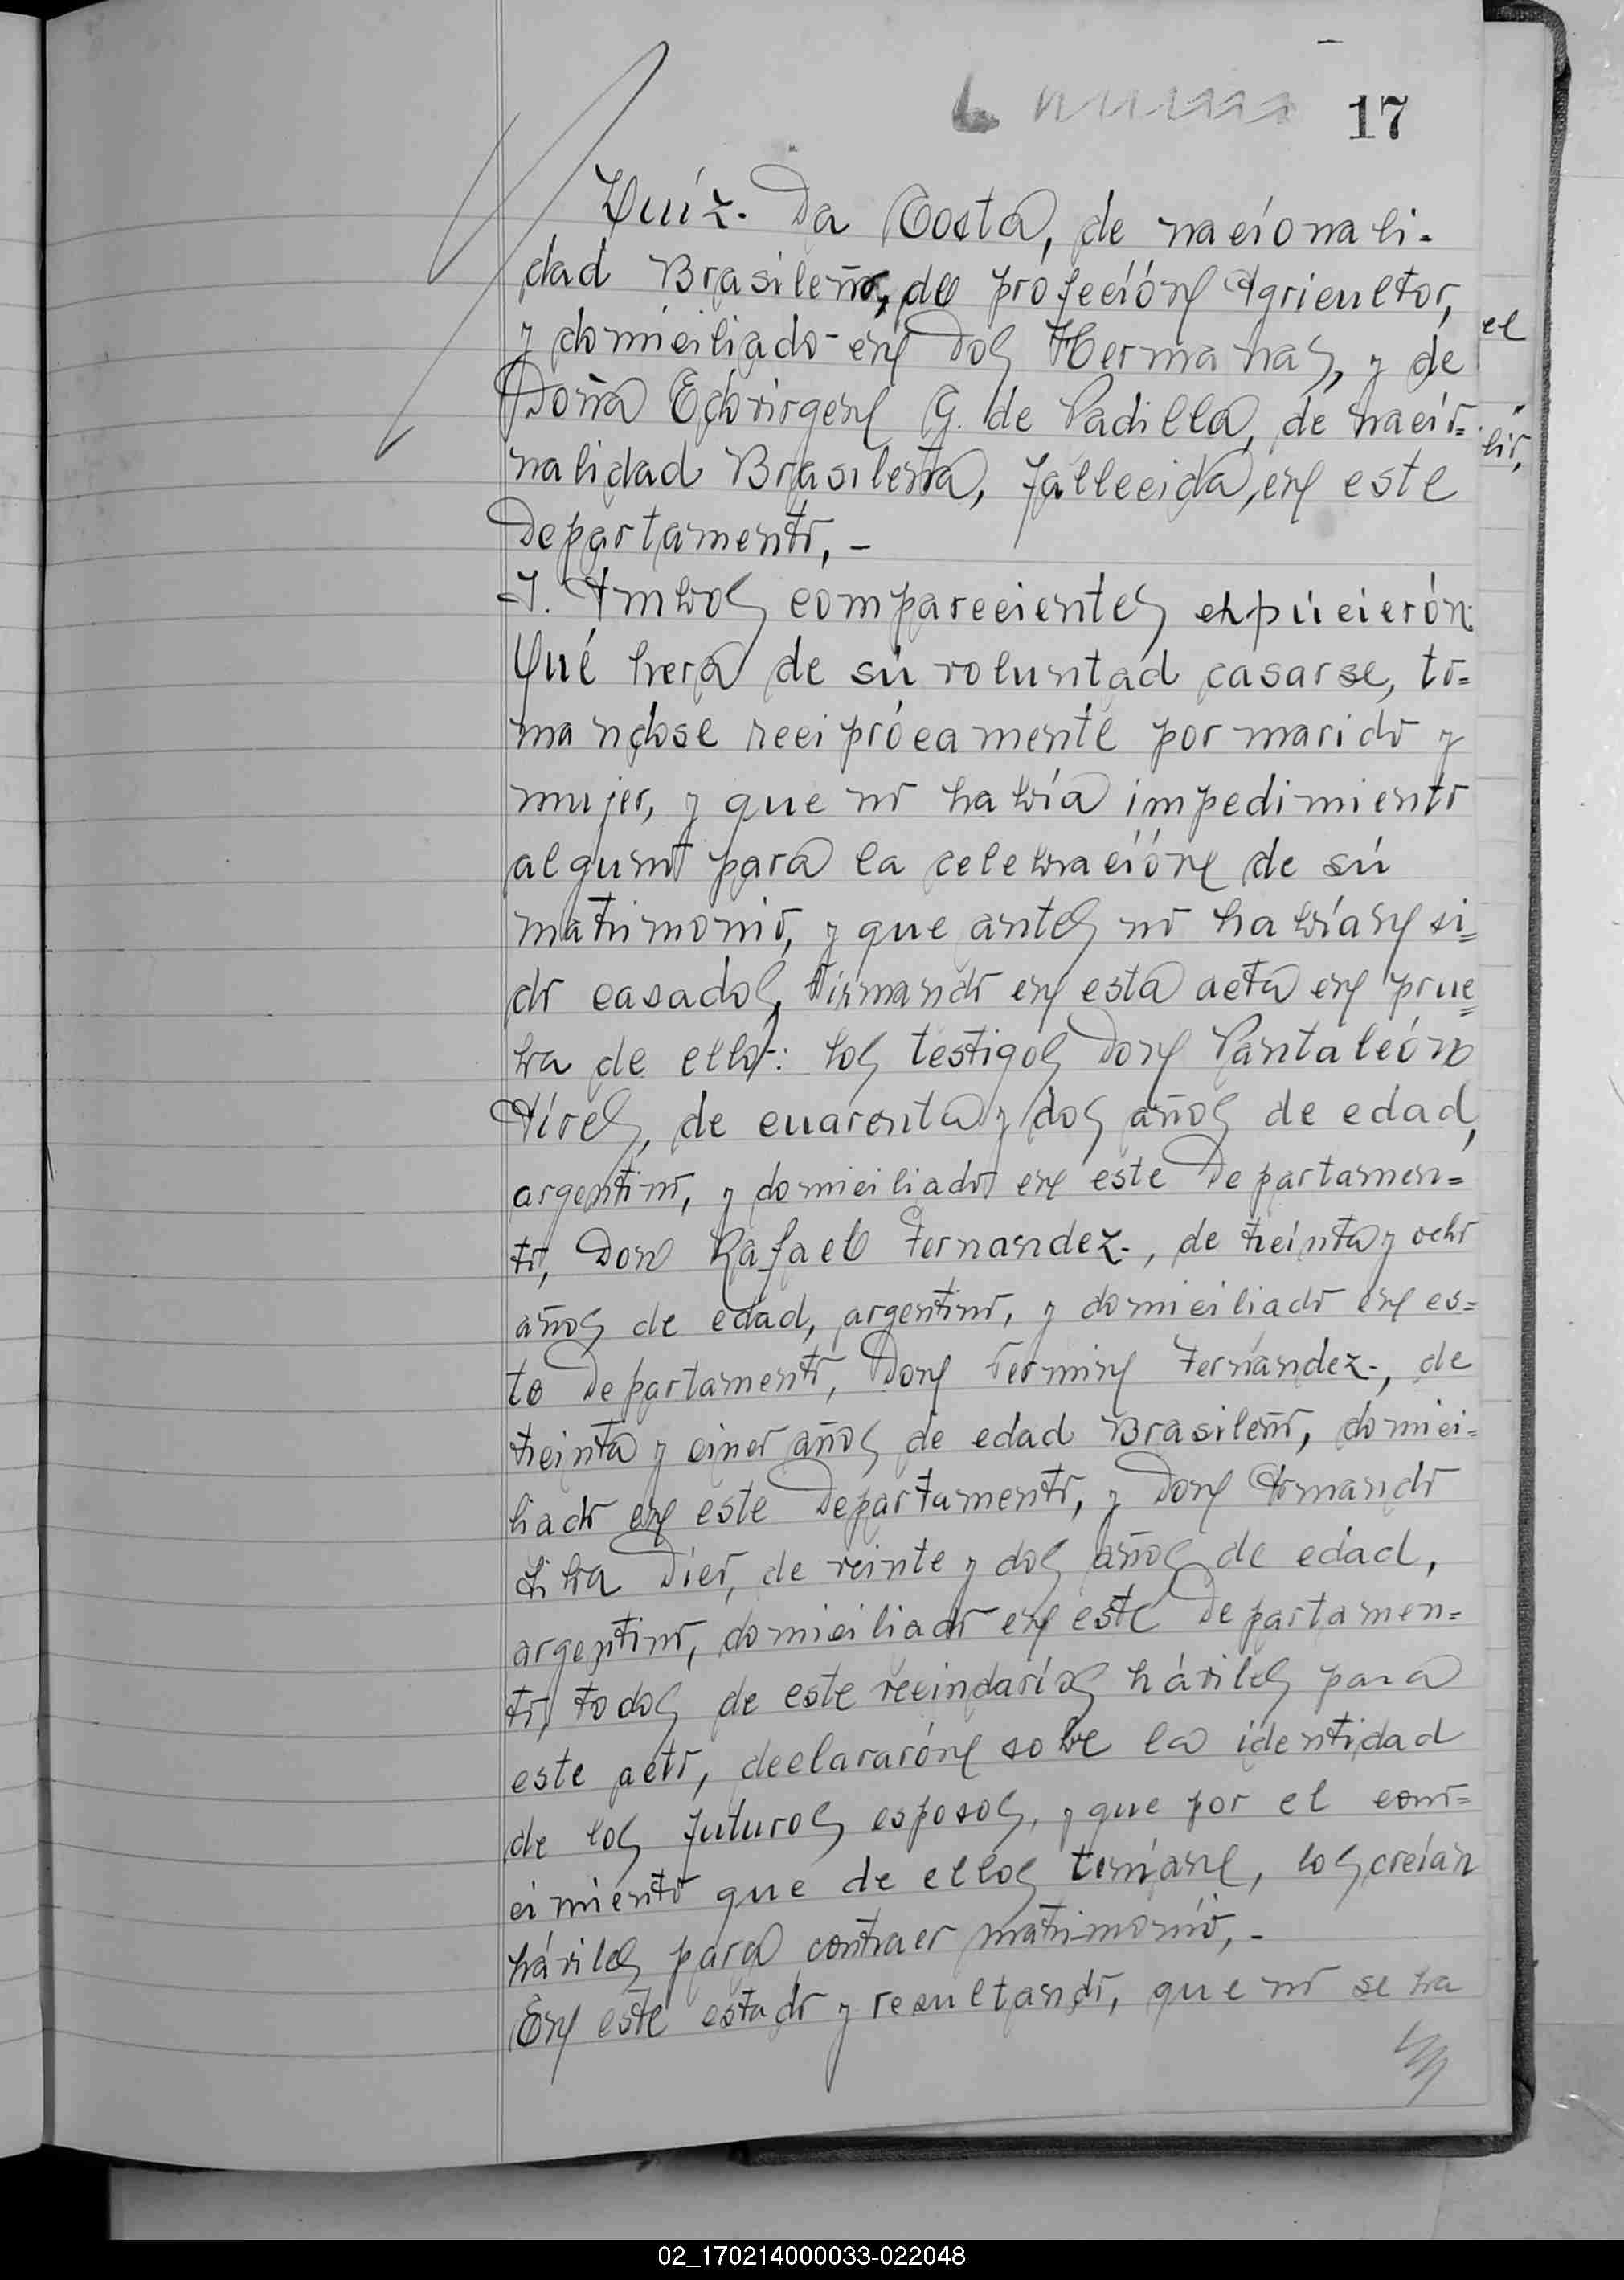 17
Luíz. Da Costa, de nacionali-
dad Brasileño, de profeción Agricultor,
y domiciliado en Dos Hermanas, y de
Doña Edovirgen G. de Padilla, de nacio=
nalidad Brasileña, fallecida, en este
Departamento, -
Y. Ambos comparecientes expucierón:
Qué hera de sú voluntad casarse, to=
mandose reciprócamente por marido y
mujer, y que no havía impedimiento
alguno para la celebración de sú
matrimonio, y que antes no havían si=
do casados, Firmando en esta acta en prue=
va de ello: los testigos Don Pantaleón
Aires, de cuarenta y dos años de edad,
argentino, y domiciliado en este Departamen=
to, Don Rafael Fernandez., de treinta y ocho
años de edad, argentino, y domiciliado en es=
te Departamento, Don Fermin Fernández., de
treinta y cinco años de edad Brasileño, domici=
liado en este Departamento, y Don Armando
de veinte y dos años de edad,
argentino, domiciliado en este Departamen=
to, todos de este vecindarios háviles para
este acto, declararón sobre la identidad
de los futuros esposos, y que por el cono=
cimiento que de ellos tenían, los creían
háviles para contraer matrimonio, -
En este estado y resultando, que no se ha
el
lio,
02_170214000033-022048